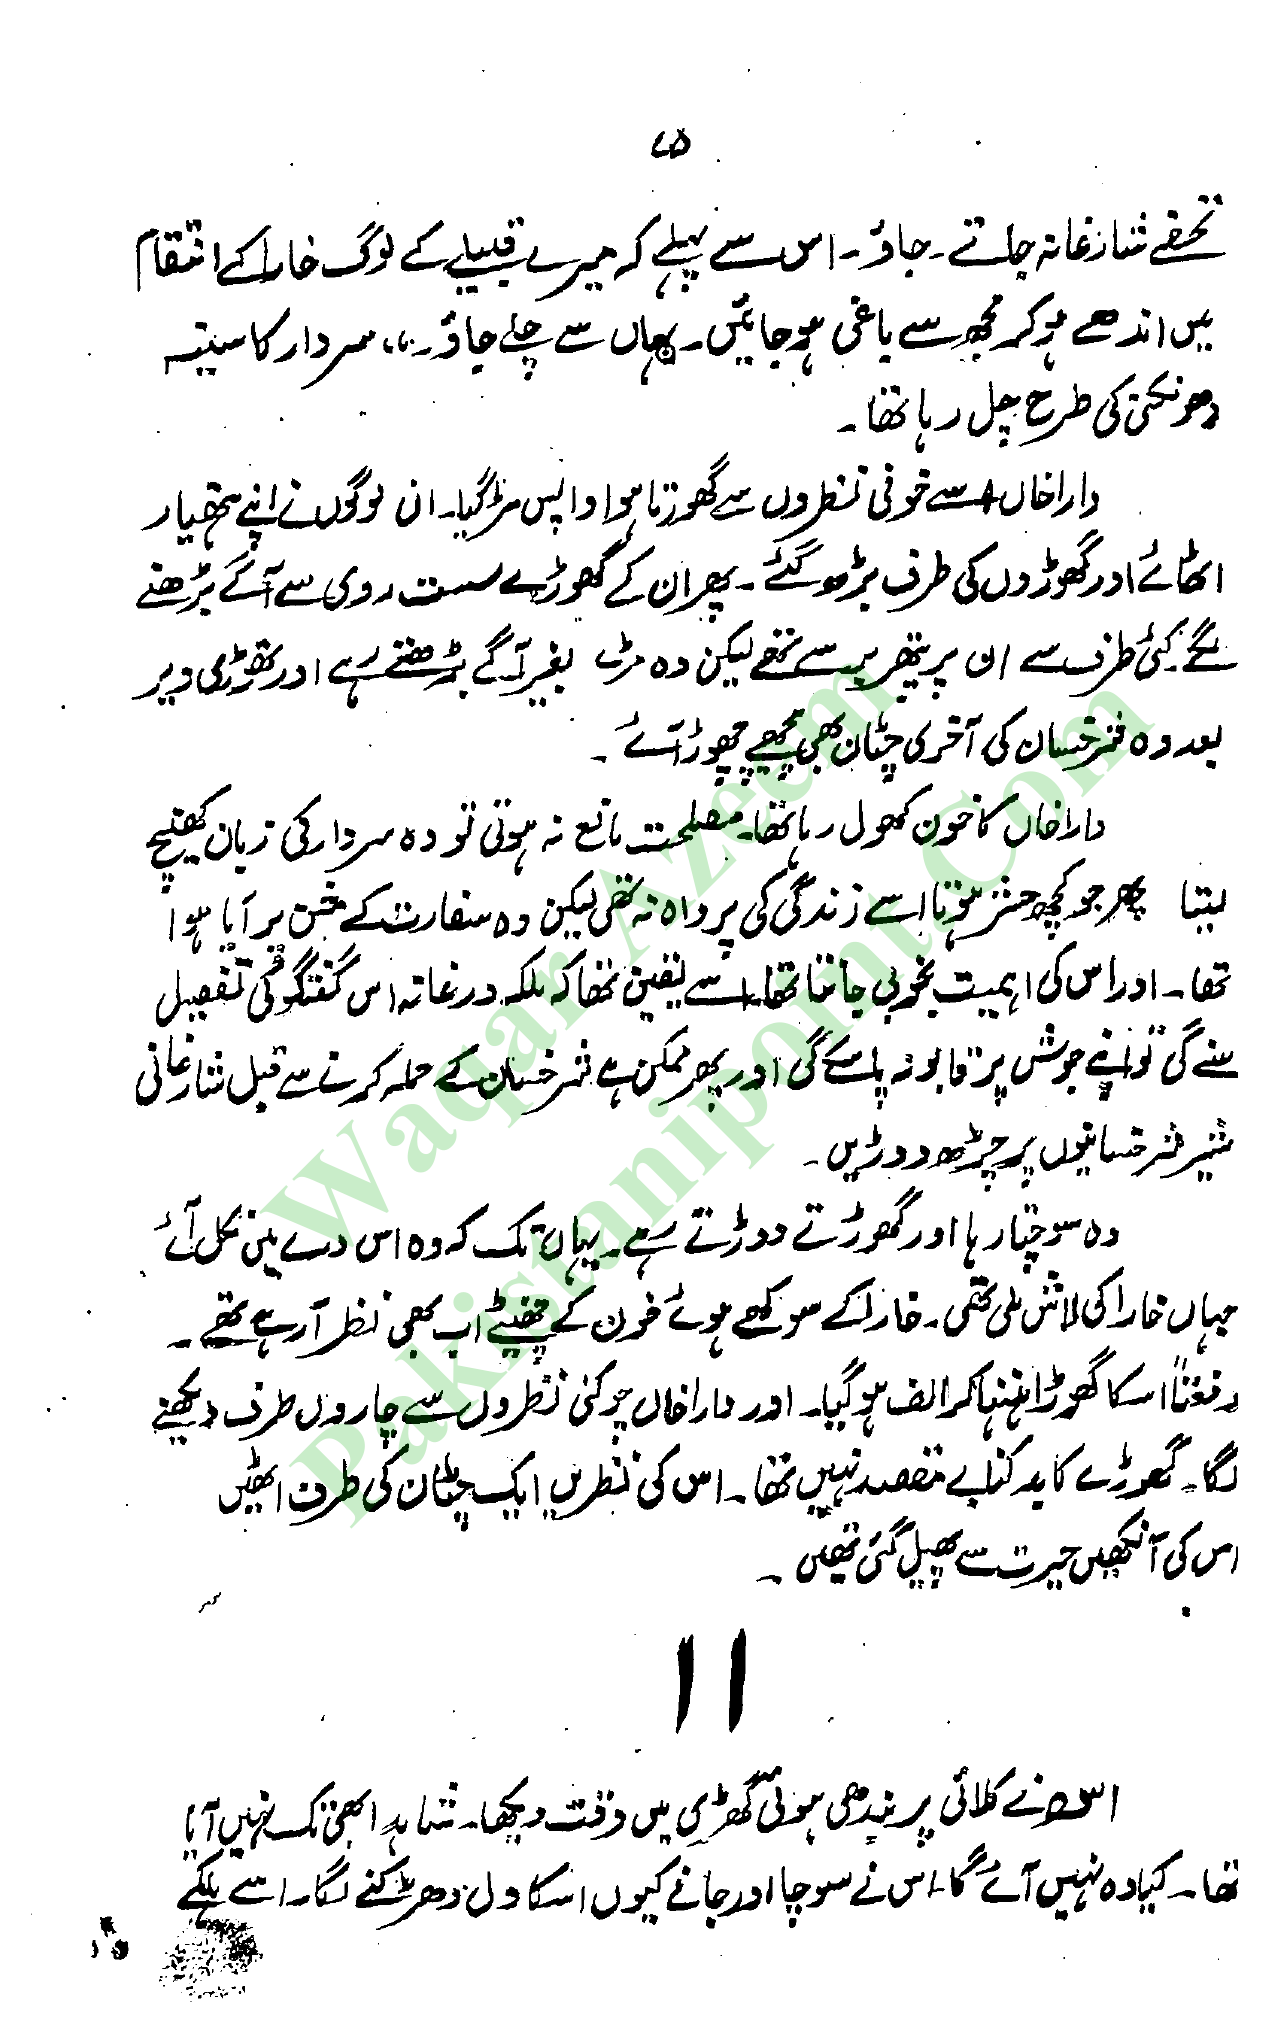 ۷۵
تحفے شازغانہ چلتے۔ جاؤ۔ اس سے پہلے کہ میرے قبیلے کے لوگ خارا کے انتقام
میں اندھے ہو کر مجھ سے باغی ہو جائیں۔ یہاں سے چلے جاؤ۔،، سردار کا سینہ
دھونکنی کی طرح چل رہا تھا۔
داراخاں اسے خونی نظروں سے گھورتا ہوا واپس مڑ گیا۔ ان لوگوں نے اپنے ہتھیار
اٹھائے اور گھوڑوں کی طرف بڑھ گئے۔ پھر ان کے گھوڑے سست روی سے آگے بڑھنے
لگے۔ کئی طرف سے ان پر پتھر برسے تھے لیکن وہ مڑے بغیر آگے بڑھتے رہے اور تھوڑی دیر
بعد وہ شمر خسان کی آخری چٹان بھی پیچھے چھوڑ آئے۔
داراخاں کا خون کھول رہا تھا۔ مصلحت مانع نہ ہوتی تو وہ سردار کی زبان کھینچ
لیتا پھر جو کچھ حشر ہوتا اسے زندگی کی پرواہ نہ تھی لیکن وہ سفارت کے مشن پر آیا ہوا
تھا۔ اور اس کی اہمیت بخوبی جانتا تھا۔ اسے یقین تھا کہ ملکہ درغانہ اس گفتگو کی تفصیل
سنے گی تو اپنے جوش پر قابو نہ پا سکے گی اور پھر ممکن ہے شمر خسان کے حملہ کرنے سے قبل شازغانی
شیر شمر خسانیوں پر چڑھ دوڑیں۔
وہ سوچتا رہا اور گھوڑے دوڑتے رہے۔ یہاں تک کہ وہ اس درے میں نکل آئے
جہاں خارا کی لاش ملی تھی۔ خارا کے سوکھے ہوئے خون کے چھینٹے اب بھی نظر آ رہے تھے۔
دفعتاً اس کا گھوڑا ہنہنا کر الف ہو گیا۔ اور داراخاں چوکنی نظروں سے چاروں طرف دیکھنے
لگا۔ گھوڑے کا بدکنا بے مقصد نہیں تھا۔ اس کی نظریں ایک چٹان کی طرف اٹھیں
اس کی آنکھیں حیرت سے پھیل گئی تھیں۔
۱۱
اس نے کلائی پر بندھی ہوئی گھڑی میں وقت دیکھا۔ شاہد ابھی تک نہیں آیا
تھا۔ کیا وہ نہیں آئے گا۔ اس نے سوچا اور جانے کیوں اس کا دل دھڑکنے لگا۔ اسے ہلکے
Waqar Azeem
Pakistanipoint.Com